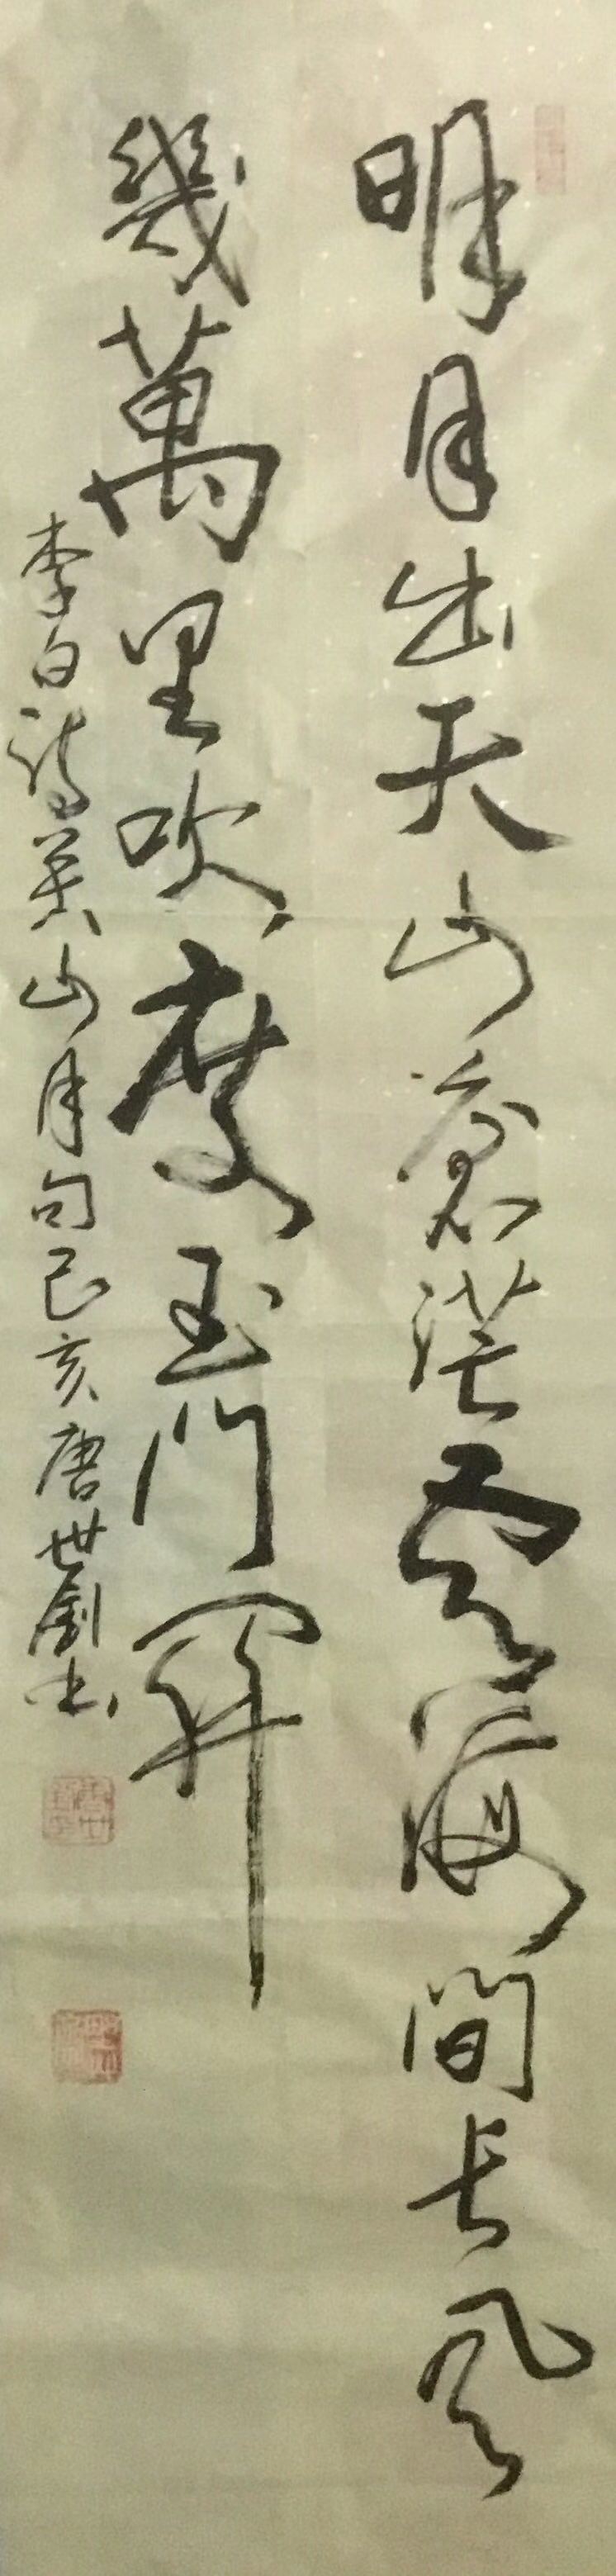 明月出天山蒼茫雲海間长风
幾萬里吹度玉門關
李白詩關山月句己亥唐世劍书